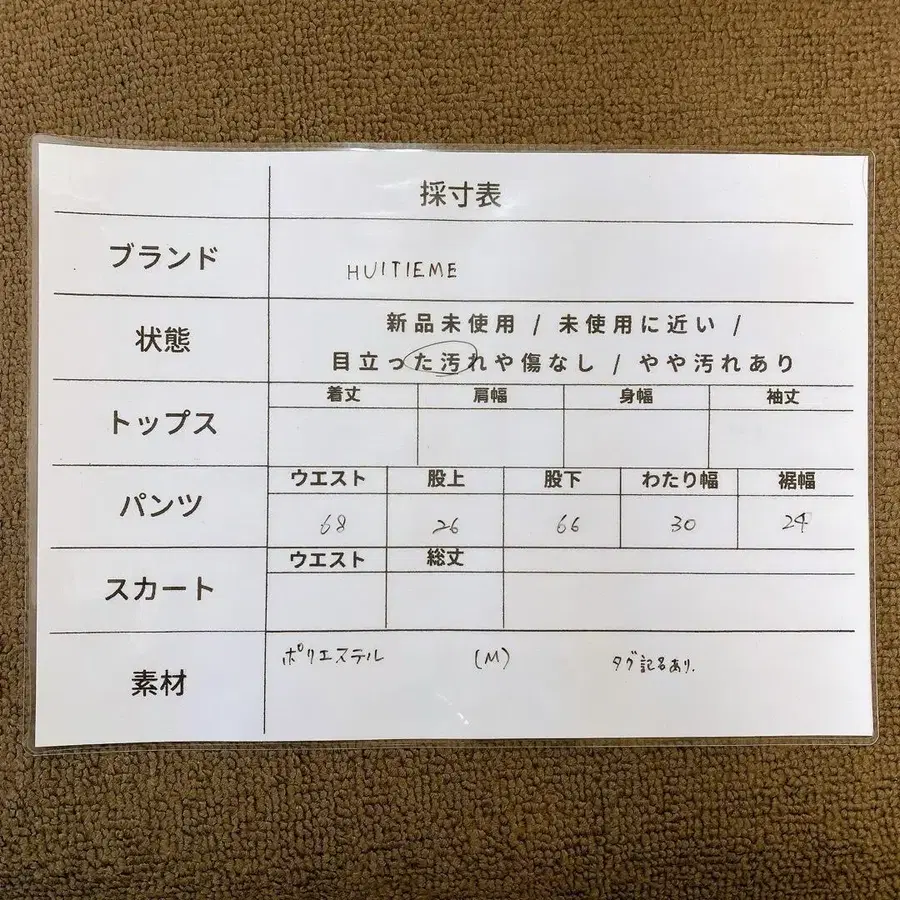 採寸表
ブランド
HUITIEME
状態
新品未使用 / 未使用に近い /
目立った汚れや傷なし / やや汚れあり
トップス
着丈 肩幅 身幅 袖丈
パンツ
ウエスト 股上 股下 わたり幅 裾幅
68 26 66 30 24
スカート
ウエスト 総丈
素材
ポリエステル (M) タグ記名あり.